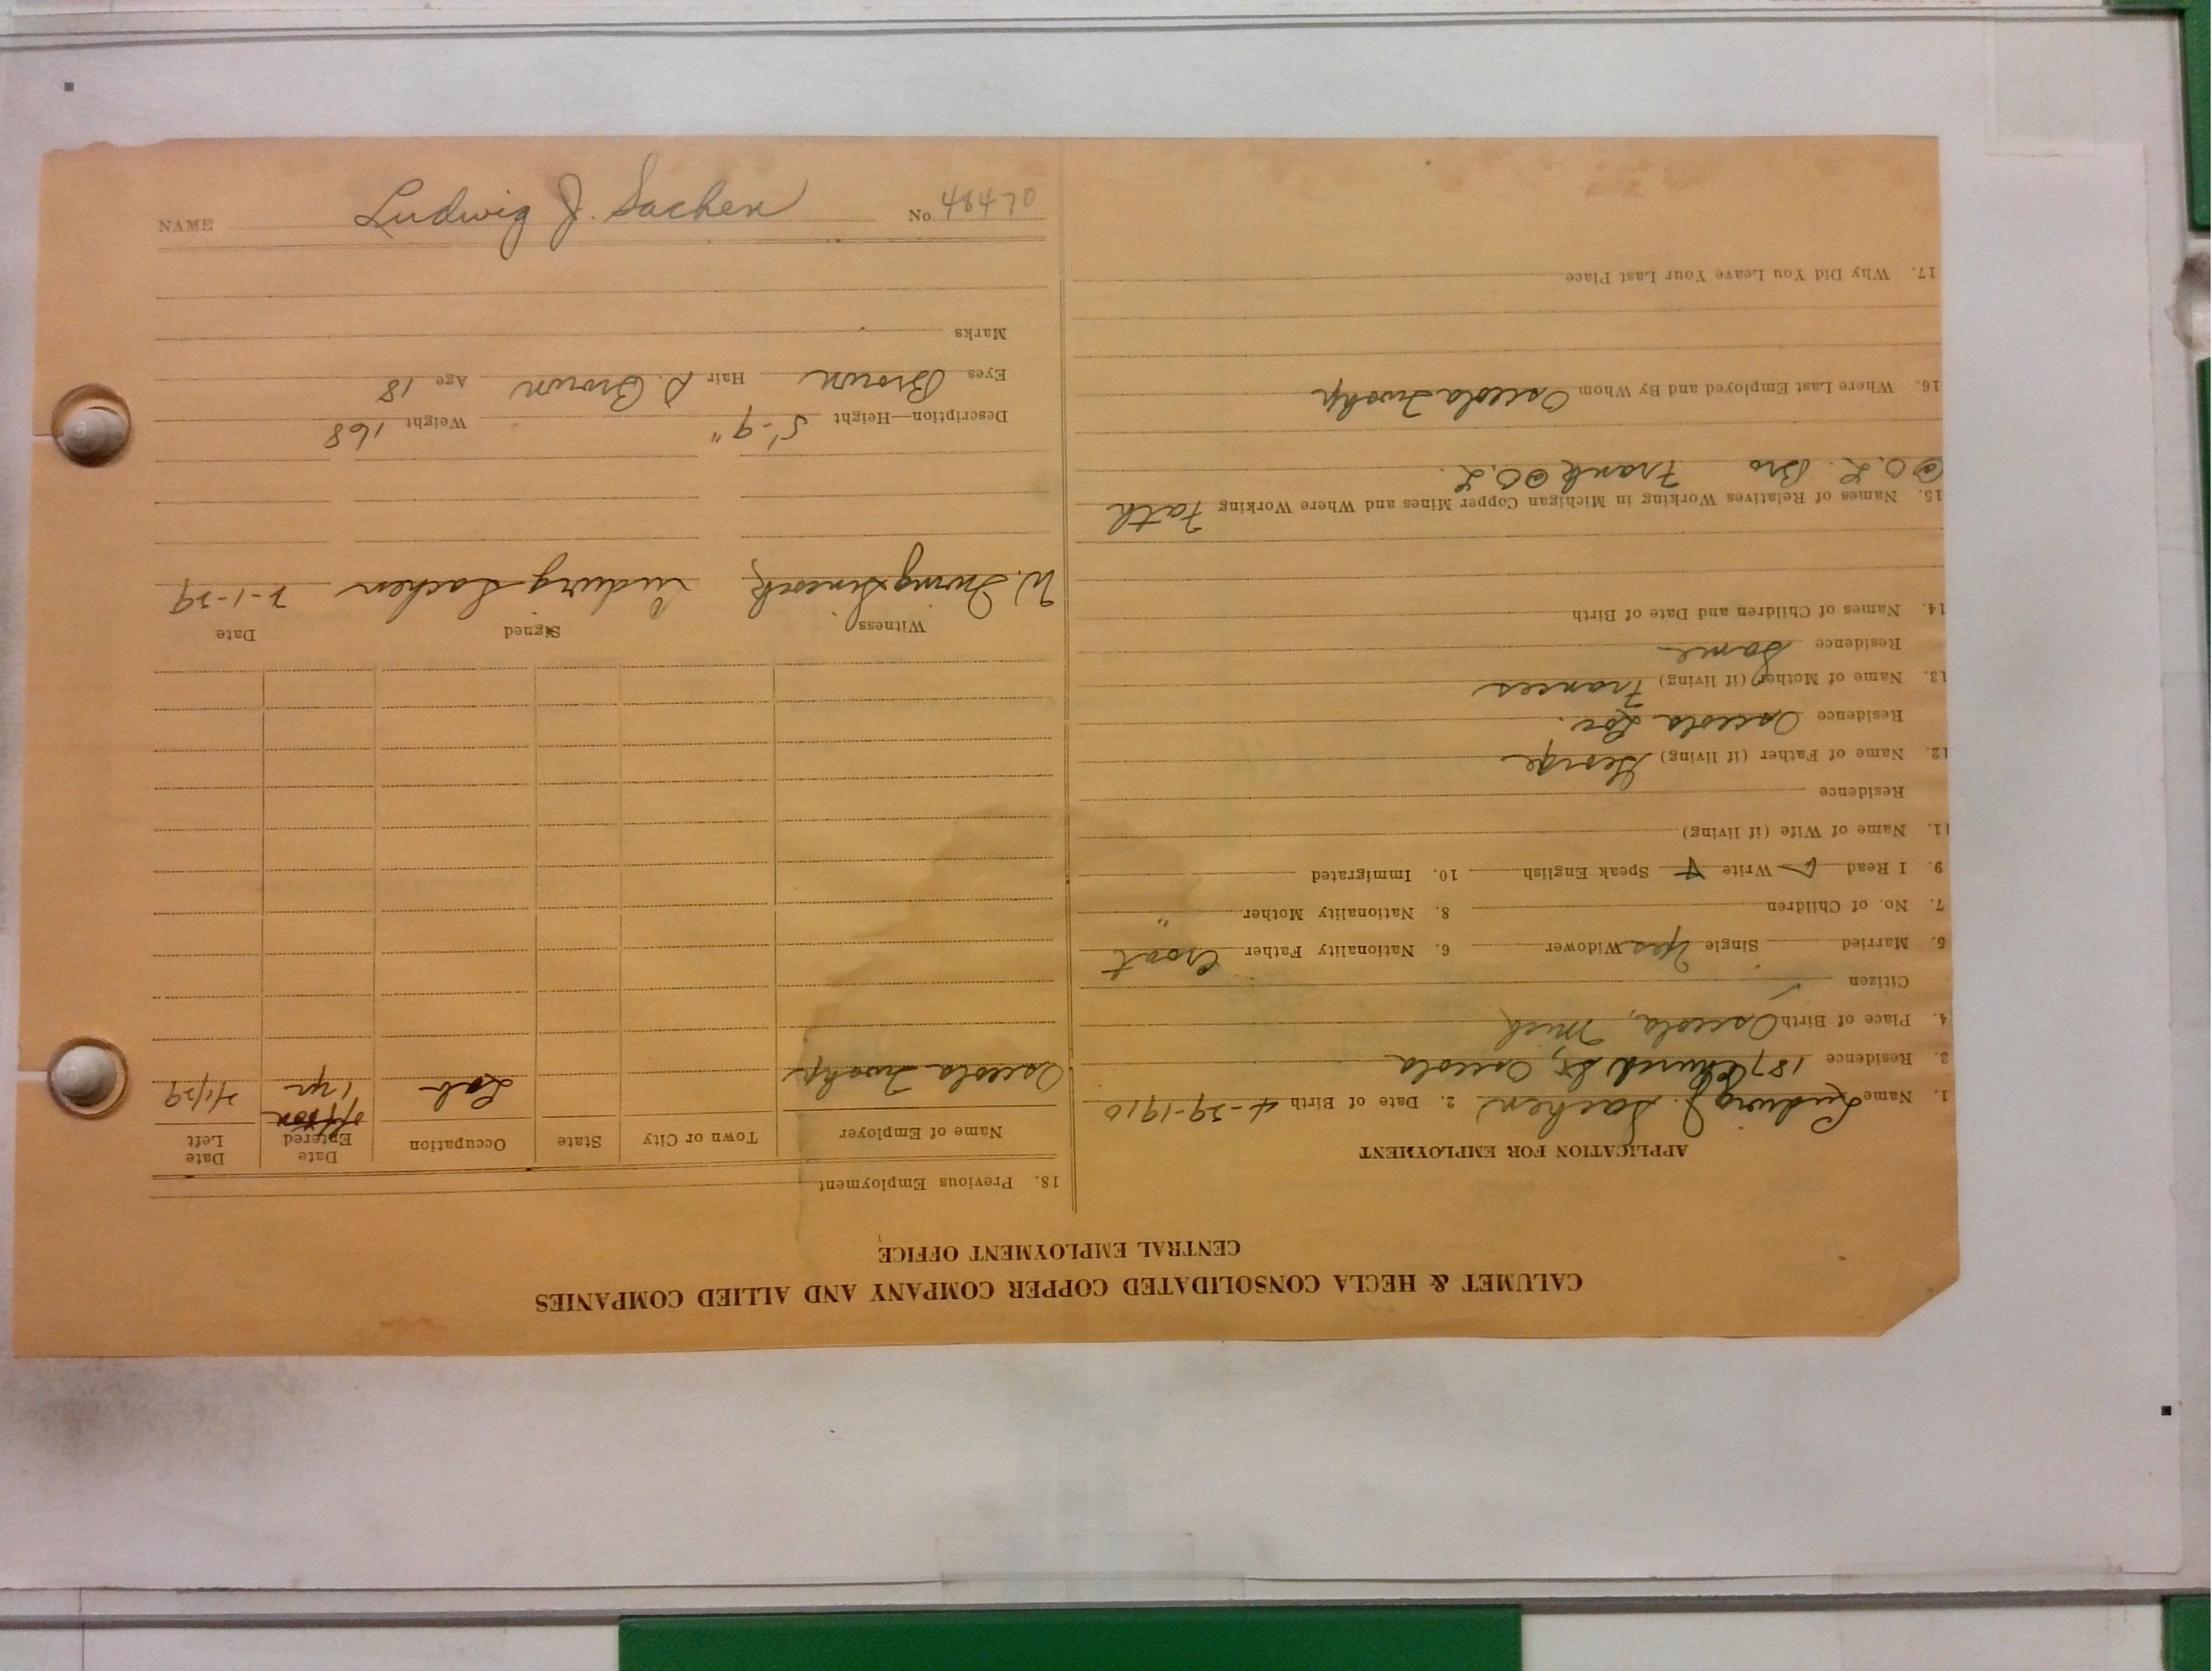 NAME Ludwig J. Sachen No. 48470
CALUMET & HECLA CONSOLIDATED COPPER COMPANY AND ALLIED COMPANIES
CENTRAL EMPLOYMENT OFFICE
APPLICATION FOR EMPLOYMENT
1. Name Ludwig J. Sachen 2. Date of Birth 4-29-1910
3. Residence 187 Church St, Osceola
4. Place of Birth Osceola, Mich
Citizen
5. Married Single Yes Widower 6. Nationality Father Croat
7. No. of Children 8. Nationality Mother "
9. I Read Write Speak English 10. Immigrated
11. Name of Wife (if living)
Residence
12. Name of Father (if living) George
Residence Osceola Loc.
13. Name of Mother (if living) Frances
Residence Same
14. Names of Children and Date of Birth
15. Names of Relatives Working in Michigan Copper Mines and Where Working Fath
@ O.L. Bro Frank @ O.L.
16. Where Last Employed and By Whom Osceola Twshp
17. Why Did You Leave Your Last Place
18. Previous Employment
Name of Employer Town or City State Occupation Date Entered Date Left
Osceola Twshp Lab 1 yr 2/1/29
Witness Signed Date
W. Irving Ludwig Sachen 2-1-29
Description—Height 5'-9" Weight 168
Eyes Brown Hair D. Brown Age 18
Marks